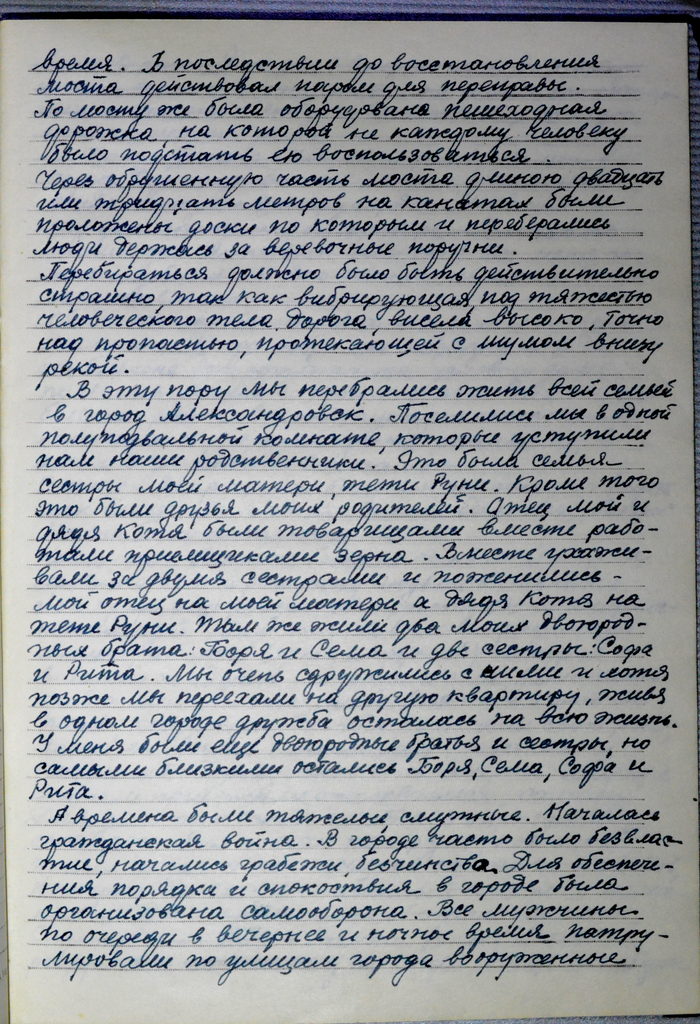 время. В последствии до восстановления
моста действовал паром для переправы.
По мосту же была оборудована пешеходная
дорожка, на которой не каждому человеку
было подстать ею воспользоваться.
Через обрушенную часть моста длиною двадцать
или тридцать метров на канатах были
проложены доски по которым и переберались
люди держась за веревочные поручни.
Перебираться должно было быть действительно
страшно, так как вибрирующая под тяжестью
человеческого тела, дорога, висела высоко, точно
над пропастью, протекающей с шумом внизу
рекой.
В эту пору мы перебрались жить всей семьей
в город Александровск. Поселились мы в одной
полуподвальной комнате, которые уступили
нам наши родственники. Это была семья
сестры моей матери, тети Руни. Кроме того
это были друзья моих родителей. Отец мой и
дядя Котя были товарищами вместе рабо-
тали приемщиками зерна. Вместе ухажи-
вали за двумя сестрами и поженились -
мой отец на моей матери а дядя Котя на
тете Руни. Там же жили два моих двоюрод-
ных брата: Боря и Сема и две сестры: Софа
и Рита. Мы очень сдружились с ними и хотя
позже мы переехали на другую квартиру, живя
в одном городе дружба осталась на всю жизнь.
У меня были еще двоюродные братья и сестры, но
самыми близкими остались Боря, Сема, Софа и
Рита.
А времена были тяжелые, смутные. Началась
гражданская война. В городе часто было безвлас-
тие, начались грабежи, бесчинства. Для обеспече-
ния порядка и спокоствия в городе была
организована самооборона. Все мужчины
по очереди в вечернее и ночное время патру-
лировали по улицам города вооруженные